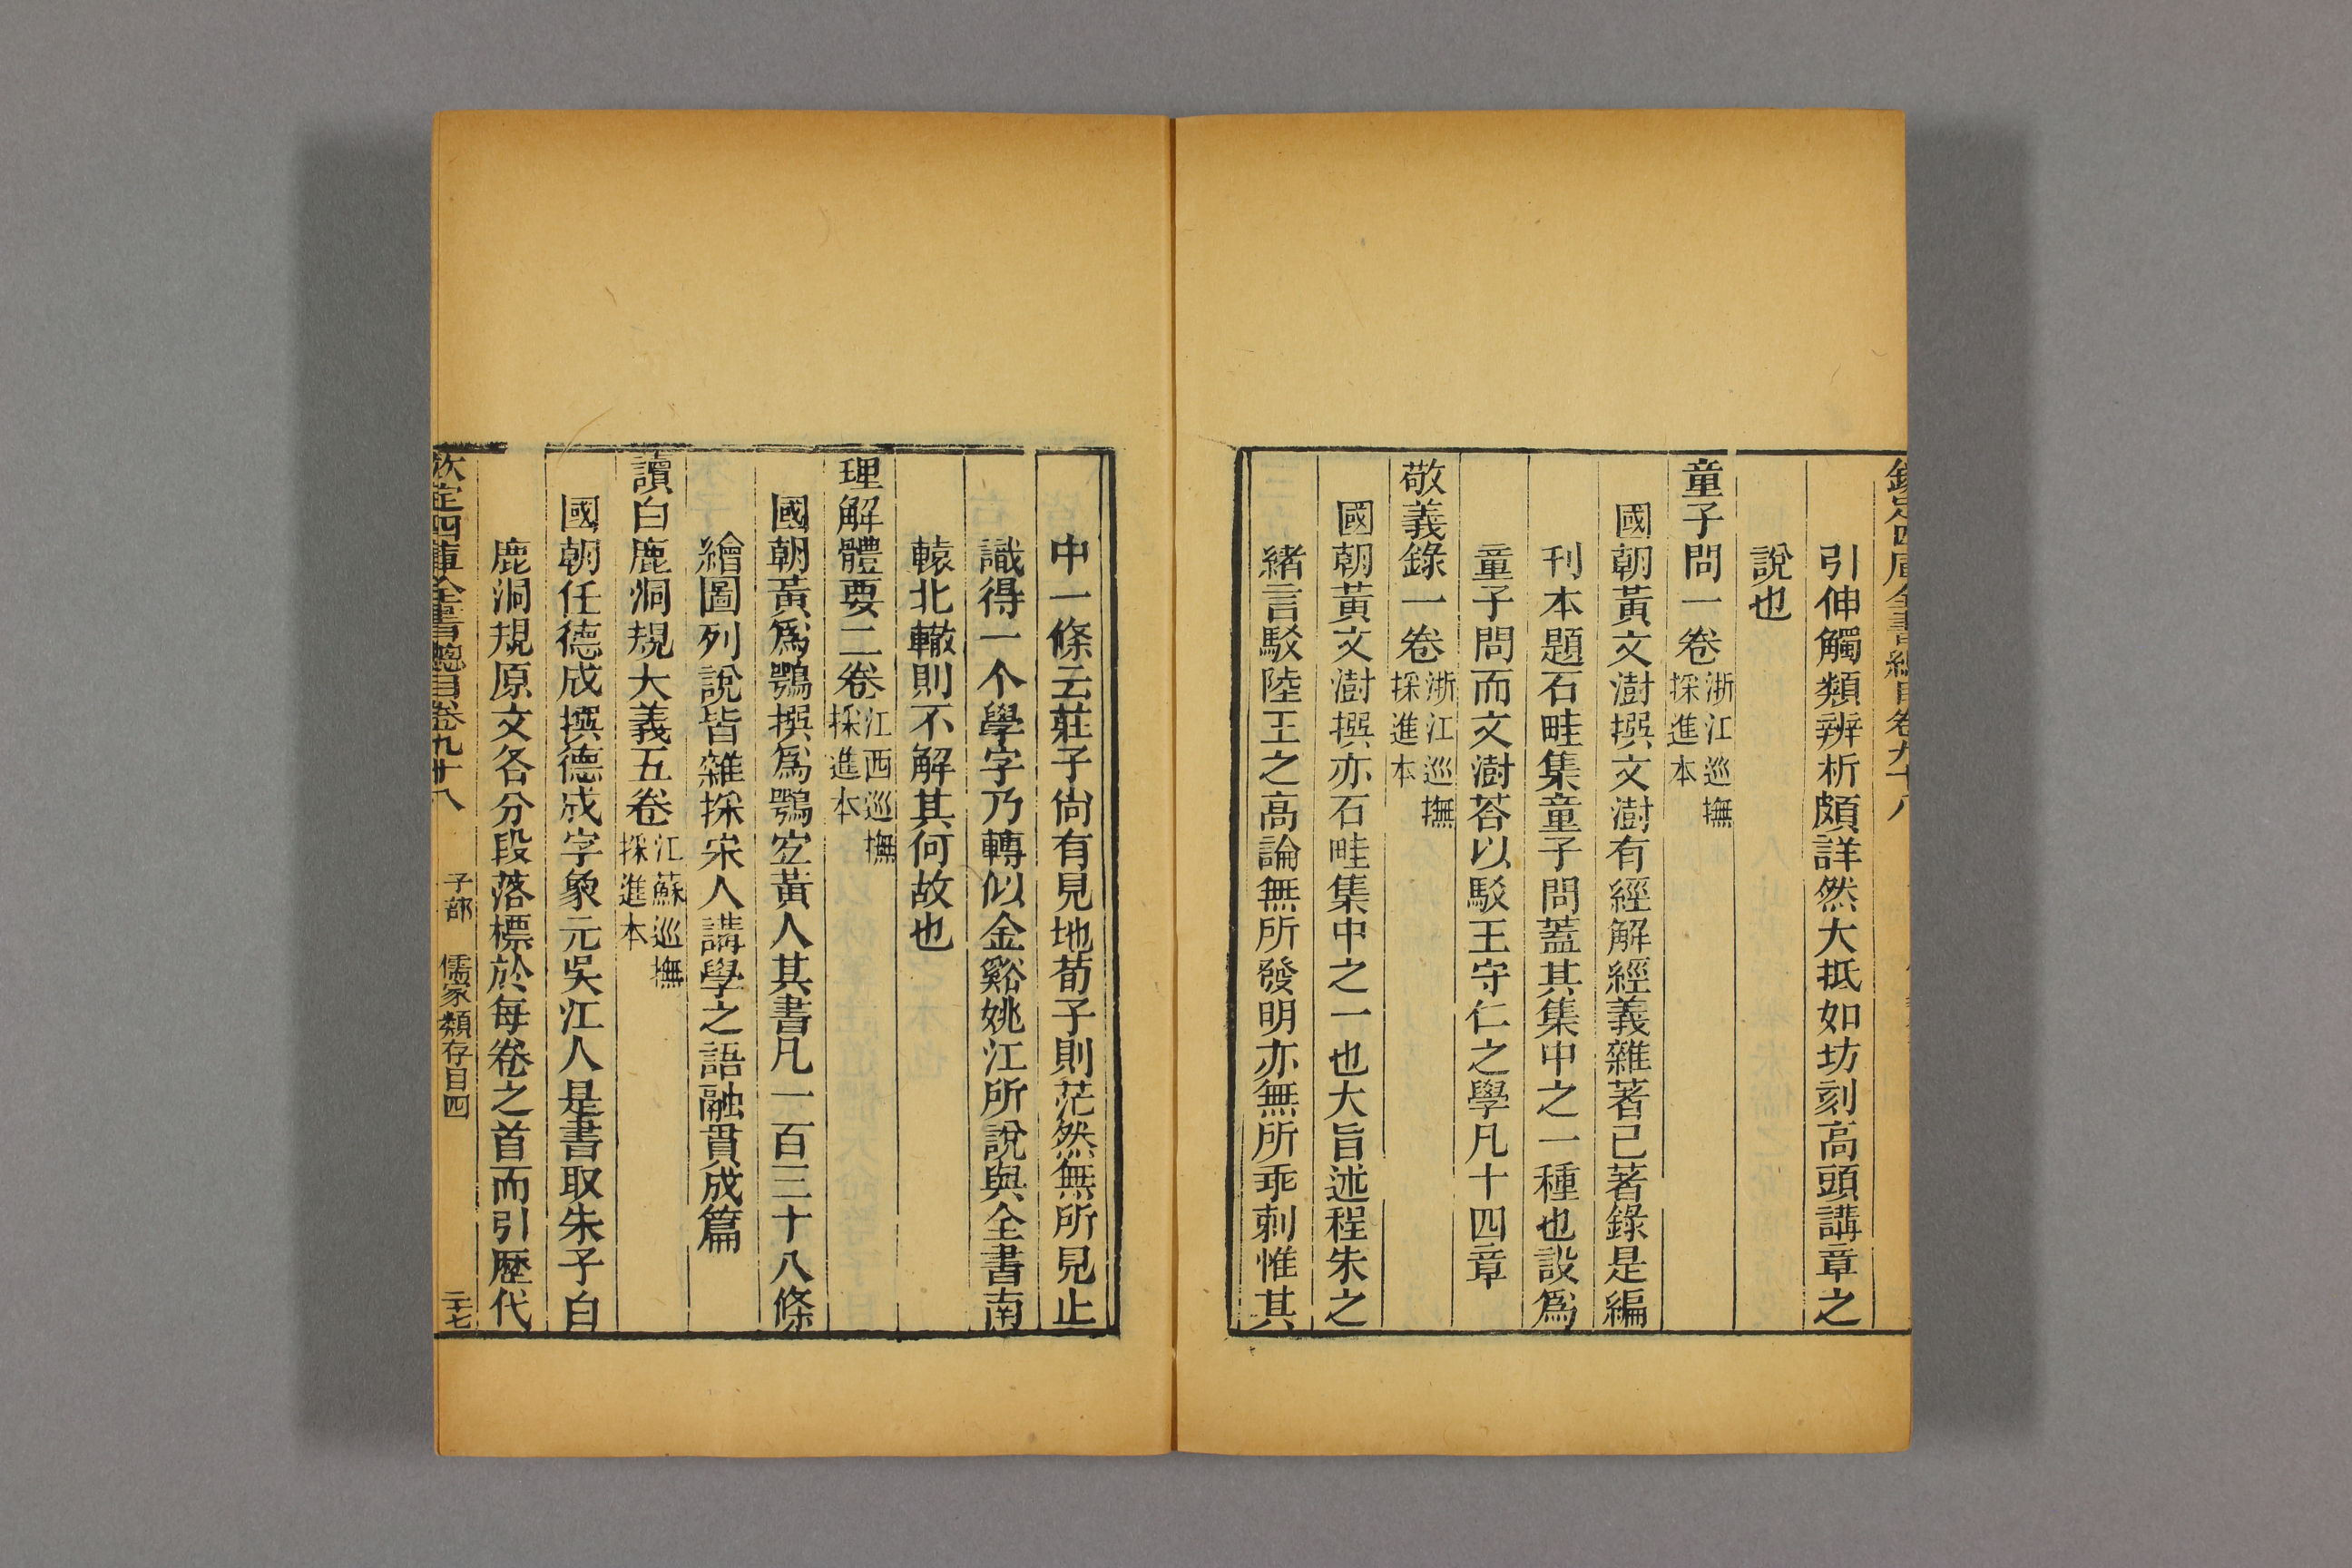 引伸觸類辨析頗詳然大抵如坊刻高頭講章之
說也
童子問一卷浙江巡撫採進本
國朝黃文澍撰文澍有經解經義雜著已著錄是編
刊本題石畦集童子問蓋其集中之一種也設爲
童子問而文澍荅以駁王守仁之學凡十四章
敬義錄一卷浙江巡撫採進本
國朝黃文澍撰亦石畦集中之一也大旨述程朱之
緒言駁陸王之高論無所發明亦無所乖刺惟其
中一條云莊子尙有見地荀子則茫然無所見止
識得一个學字乃轉似金谿姚江所說與全書南
轅北轍則不解其何故也
理解體要二卷江西巡撫採進本
國朝黃爲鶚撰爲鶚宜黃人其書凡一百三十八條
繪圖列說皆雜採宋人講學之語融貫成篇
讀白鹿洞規大義五卷江蘇巡撫採進本
國朝任德成撰德成字象元吳江人是書取朱子白
鹿洞規原文各分段落標於每卷之首而引歷代
欽定四庫全書總目卷九十八 子部 儒家類存目四 二十七